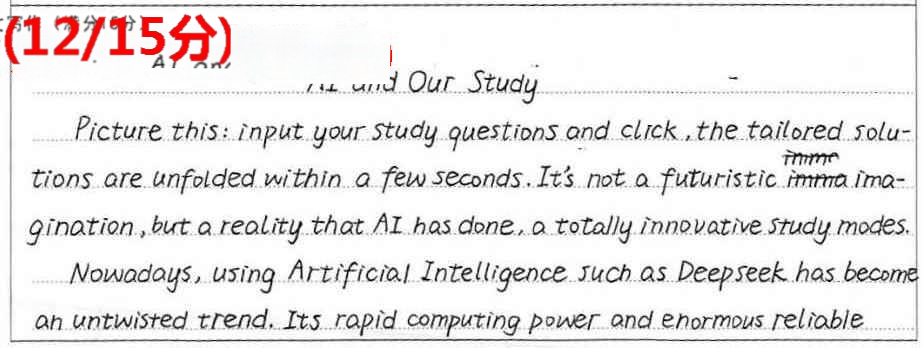 (12/15分)
AI and Our Study
Picture this: input your study questions and click, the tailored solu-
tions are unfolded within a few seconds. It's not a futuristic ima-
gination, but a reality that AI has done, a totally innovative study modes.
Nowadays, using Artificial Intelligence such as Deepseek has become
an untwisted trend. Its rapid computing power and enormous reliable